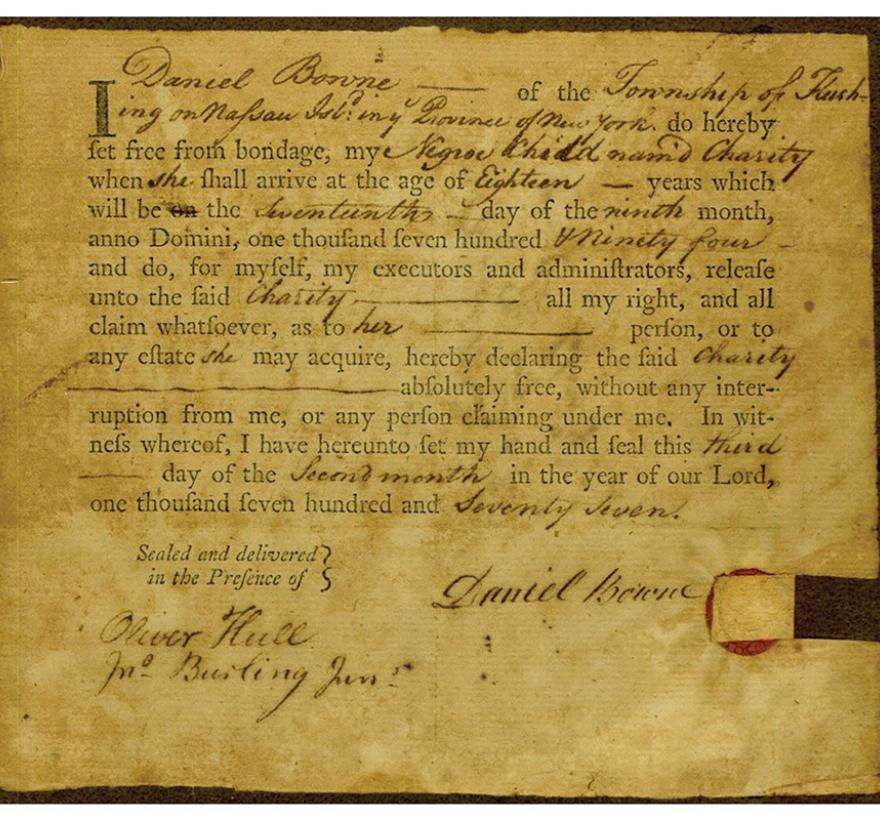 I Daniel Bowne — of the Township of Flush-
ing on Naſsau Isld: in ye Province of New York. do hereby
ſet free from bondage, my Negroe Child nam'd Charity
when she ſhall arrive at the age of Eighteen — years which
will be on the Seventeenth — day of the ninth month,
anno Domini, one thouſand ſeven hundred & Ninety four —
and do, for myſelf, my executors and adminiſtrators, releaſe
unto the ſaid Charity — all my right, and all
claim whatſoever, as to her — perſon, or to
any eſtate she may acquire, hereby declaring the ſaid Charity
— abſolutely free, without any inter-
ruption from me, or any perſon claiming under me. In wit-
neſs whereof, I have hereunto ſet my hand and ſeal this third
— day of the Second month in the year of our Lord,
one thouſand ſeven hundred and Seventy Seven.
Sealed and delivered }
in the Preſence of }
Daniel Bowne
Oliver Hull
Jno. Burling Junr.